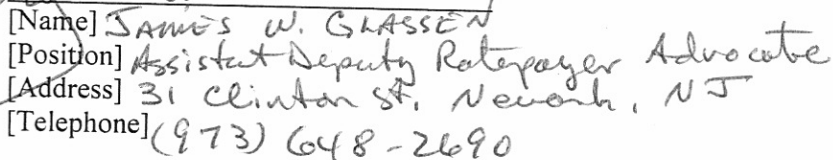 [Name] JAMES W. GLASSEN
[Position] Assistant Deputy Ratepayer Advocate
[Address] 31 Clinton St, Newark, NJ
[Telephone] (973) 648-2690